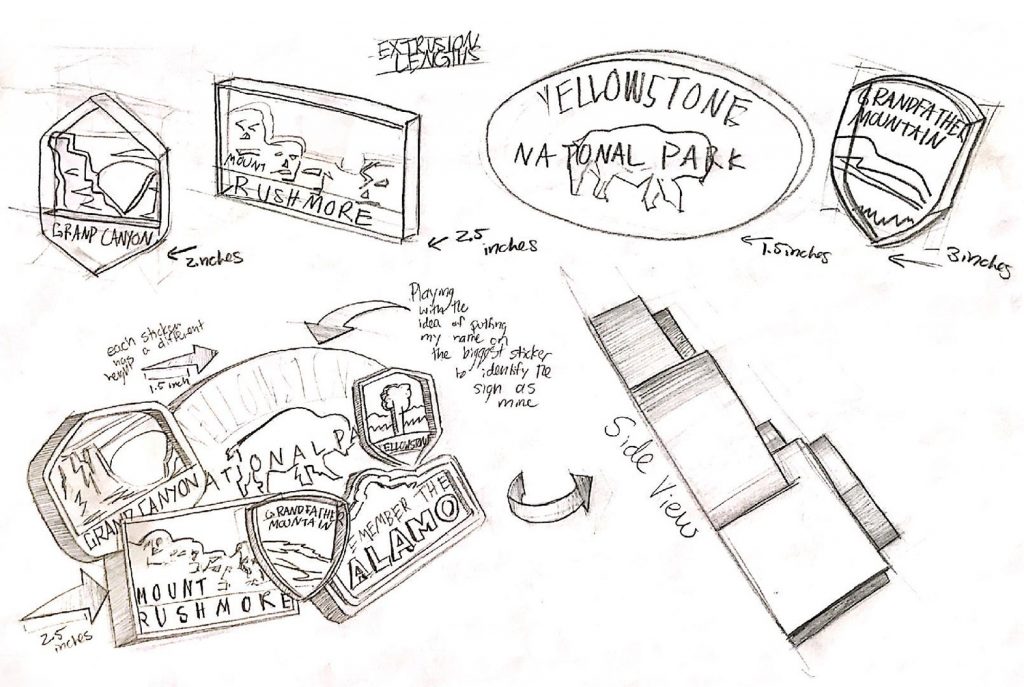 EXTRUSION
LENGTHS
GRAND CANYON
2 inches
MOUNT
RUSHMORE
2.5
inches
YELLOWSTONE
NATIONAL PARK
1.5 inches
GRANDFATHER
MOUNTAIN
3 inches
each sticker
has a different
height
1.5 inch
Playing
with the
idea of putting
my name on
the biggest sticker
to identify the
sign as
mine
YELLOWSTON
ATIONAL PA
GRAND CANYON
YELLOWSTONE
GRANDFATHER
MOUNTAIN
EMEMBER THE
ALAMO
MOUNT
RUSHMORE
2.5
inches
Side View